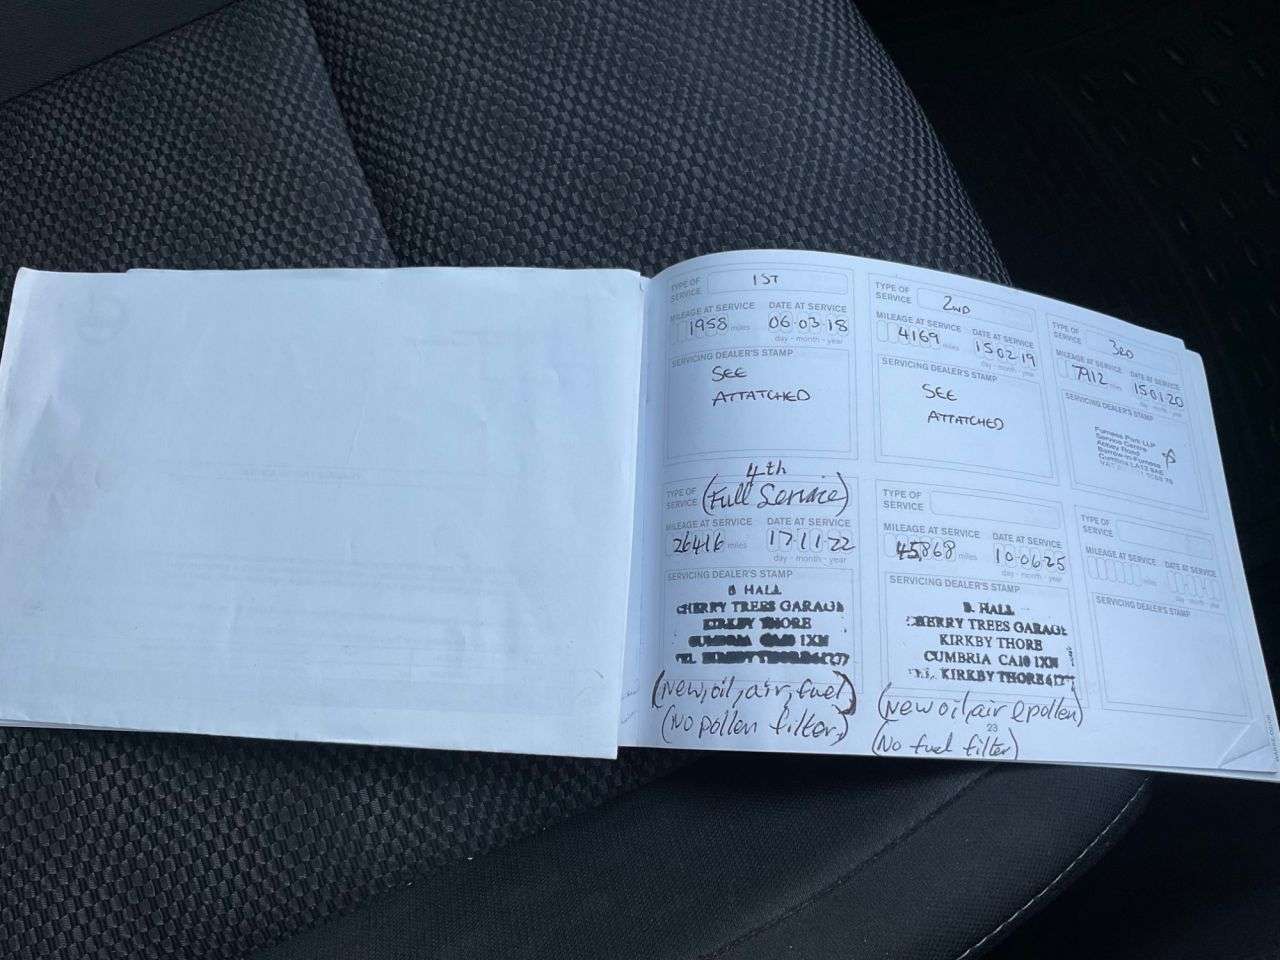 TYPE OF SERVICE 1ST
MILEAGE AT SERVICE DATE AT SERVICE
1958 miles 06-03-18
day - month - year
SERVICING DEALER'S STAMP
SEE
ATTATCHED
TYPE OF SERVICE 2ND
MILEAGE AT SERVICE DATE AT SERVICE
4169 miles 15 02 19
day - month - year
SERVICING DEALER'S STAMP
SEE
ATTATCHED
TYPE OF SERVICE 3RD
MILEAGE AT SERVICE DATE AT SERVICE
7912 miles 15 01 20
day - month - year
SERVICING DEALER'S STAMP
Furness Park LLP
Service Centre
Abbey Road
Barrow-in-Furness
Cumbria LA13 9AE
4th
TYPE OF SERVICE (Full Service)
MILEAGE AT SERVICE DATE AT SERVICE
26416 miles 17-11-22
day - month - year
SERVICING DEALER'S STAMP
B HALL
CHERRY TREES GARAGE
KIRKBY THORE
CUMBRIA CA10 1XN
(New, oil, air, fuel)
(No pollen filter)
TYPE OF SERVICE
MILEAGE AT SERVICE DATE AT SERVICE
45868 miles 10-06-25
day - month - year
SERVICING DEALER'S STAMP
B. HALL
CHERRY TREES GARAGE
KIRKBY THORE
CUMBRIA CA10 1XN
KIRKBY THORE
(New oil, air & pollen)
23
(No fuel filter)
TYPE OF SERVICE
MILEAGE AT SERVICE DATE AT SERVICE
miles
day - month - year
SERVICING DEALER'S STAMP